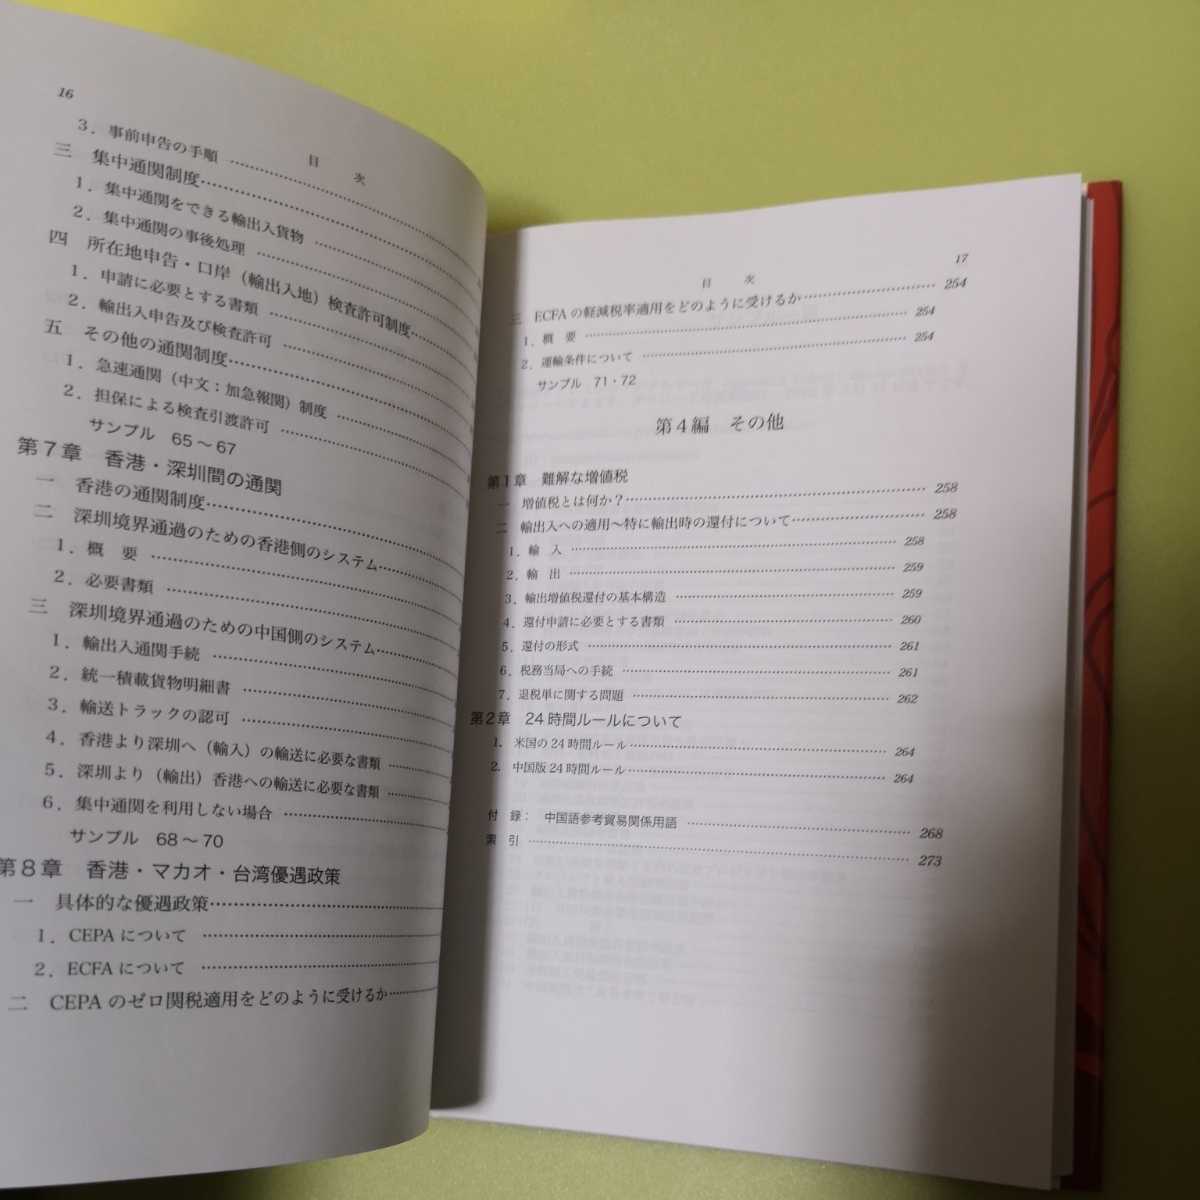 16
目 次
3．事前申告の手順
三 集中通関制度
1．集中通関をできる輸出入貨物
2．集中通関の事後処理
四 所在地申告・口岸（輸出入地）検査許可制度
1．申請に必要とする書類
2．輸出入申告及び検査許可
五 その他の通関制度
1．急速通関（中文：加急報関）制度
2．担保による検査引渡許可
サンプル 65～67
第7章 香港・深圳間の通関
一 香港の通関制度
二 深圳境界通過のための香港側のシステム
1．概 要
2．必要書類
三 深圳境界通過のための中国側のシステム
1．輸出入通関手続
2．統一積載貨物明細書
3．輸送トラックの認可
4．香港より深圳へ（輸入）の輸送に必要な書類
5．深圳より（輸出）香港への輸送に必要な書類
6．集中通関を利用しない場合
サンプル 68～70
第8章 香港・マカオ・台湾優遇政策
一 具体的な優遇政策
1．CEPAについて
2．ECFAについて
二 CEPAのゼロ関税適用をどのように受けるか
17
目 次
三 ECFAの軽減税率適用をどのように受けるか 254
1．概 要 254
2．運輸条件について 254
サンプル 71・72
第4編 その他
第1章 難解な増値税
一 増値税とは何か？ 258
二 輸出入への適用～特に輸出時の還付について 258
1．輸 入 258
2．輸 出 259
3．輸出増値税還付の基本構造 259
4．還付申請に必要とする書類 260
5．還付の形式 261
6．税務当局への手続 261
7．退税単に関する問題 262
第2章 24時間ルールについて
1. 米国の24時間ルール 264
2. 中国版24時間ルール 264
付 録： 中国語参考貿易関係用語 268
索 引 273